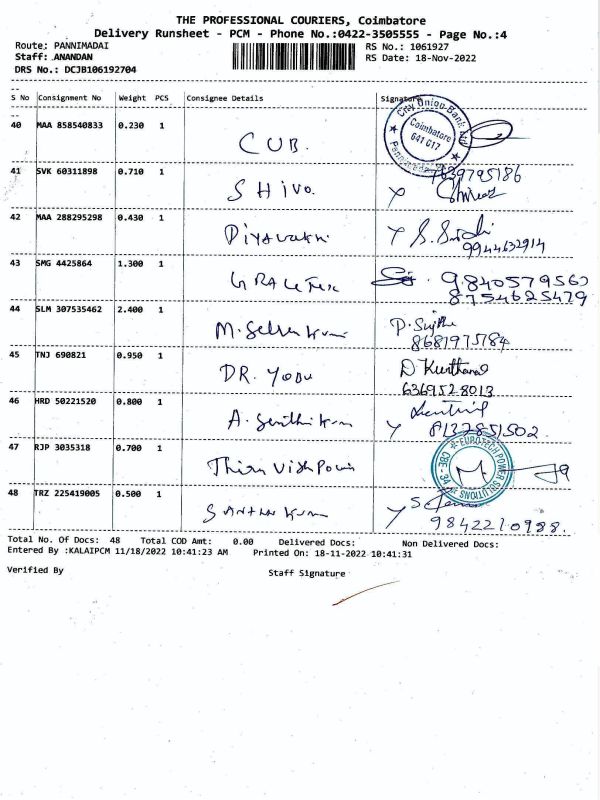 THE PROFESSIONAL COURIERS, Coimbatore
Delivery Runsheet - PCM - Phone No.:0422-3505555 - Page No.:4
Route: PANNIMADAI RS No.: 1061927
Staff: ANANDAN RS Date: 18-Nov-2022
DRS No.: DCJB106192704
S No Consignment No Weight PCS Consignee Details Signature
City Union Bank Ltd
Coimbatore
641 017
40 MAA 858540833 0.230 1 CUB.
41 SVK 60311898 0.710 1 SHIVA. 7639795186
42 MAA 288295298 0.430 1 9944632914
43 SMG 4425864 1.300 1 9840579562
8754625479
44 SLM 307535462 2.400 1 8681975184
45 TNJ 690821 0.950 1 DR. YOBU
6369528013
46 HRD 50221520 0.800 1
47 RJP 3035318 0.700 1 EUROTECH POWER SOLUTIONS CBE-34
48 TRZ 225419005 0.500 1
9842210988.
Total No. Of Docs: 48 Total COD Amt: 0.00 Delivered Docs: Non Delivered Docs:
Entered By :KALAIPCM 11/18/2022 10:41:23 AM Printed On: 18-11-2022 10:41:31
Verified By Staff Signature